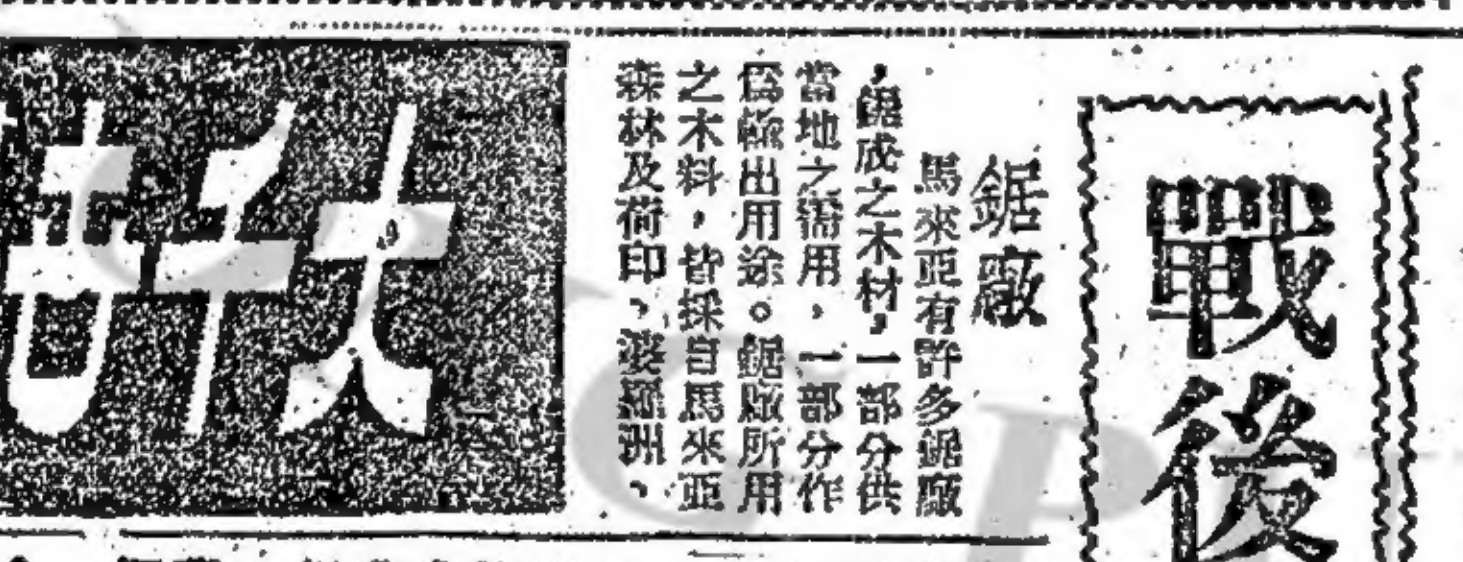 戰後
鋸廠
馬來亞有許多鋸廠
，鋸成之木材，一部分供
當地之需用，一部分作
爲輸出用途。鋸廠所用
之木料，皆採自馬來亞
森林及荷印、婆羅洲、